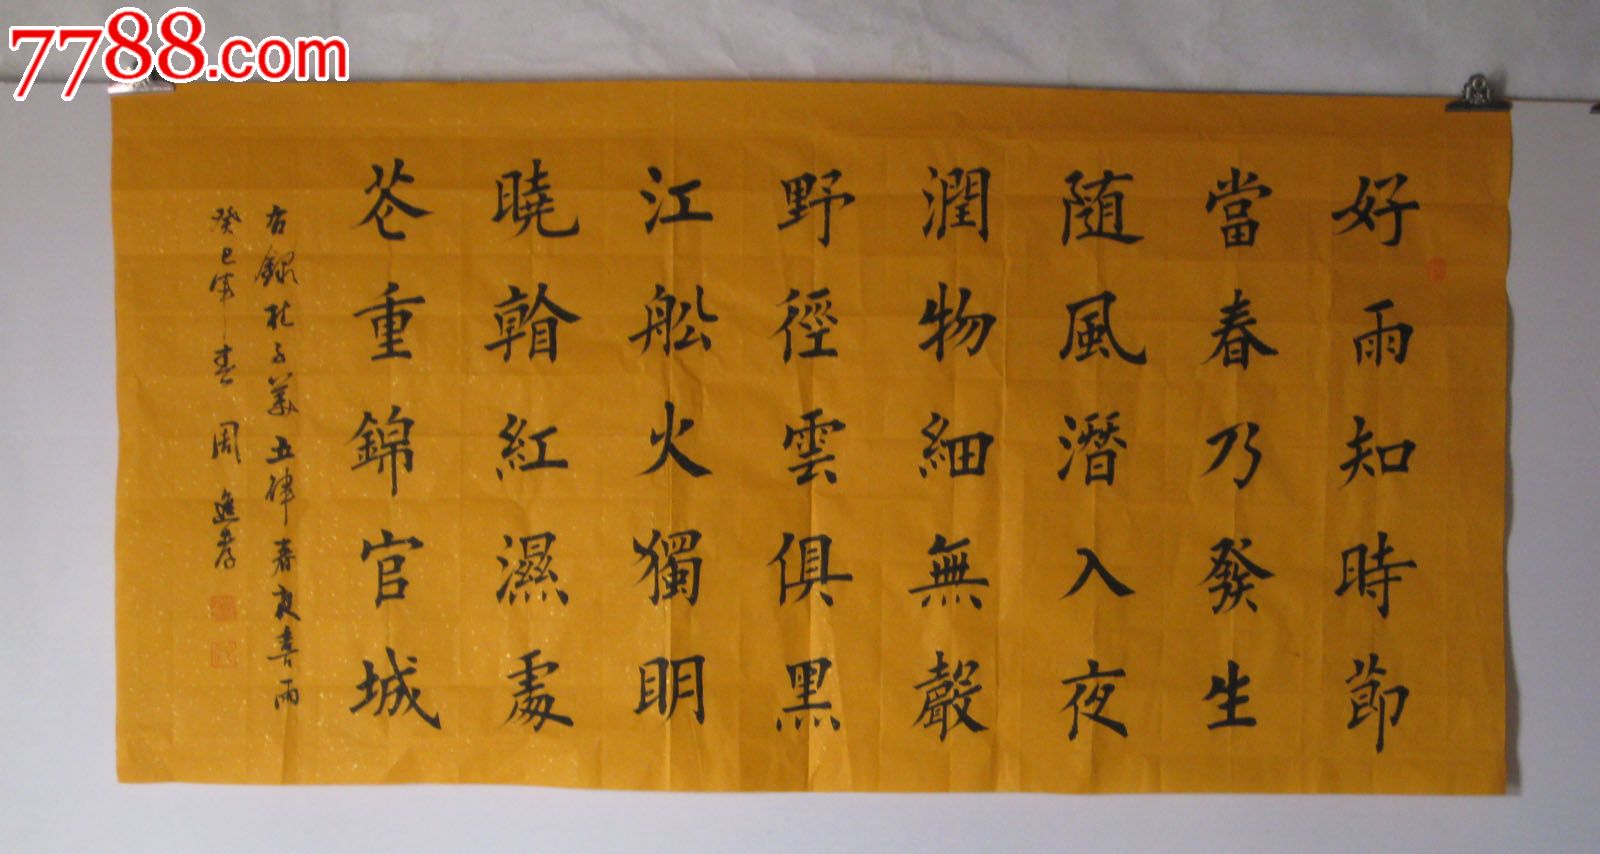 7788.com
好雨知時節
當春乃發生
随風潛入夜
潤物細無聲
野徑雲俱黑
江船火獨明
曉看紅濕處
花重錦官城
右錄杜子美五律春夜喜雨
癸巳年春 周進孝